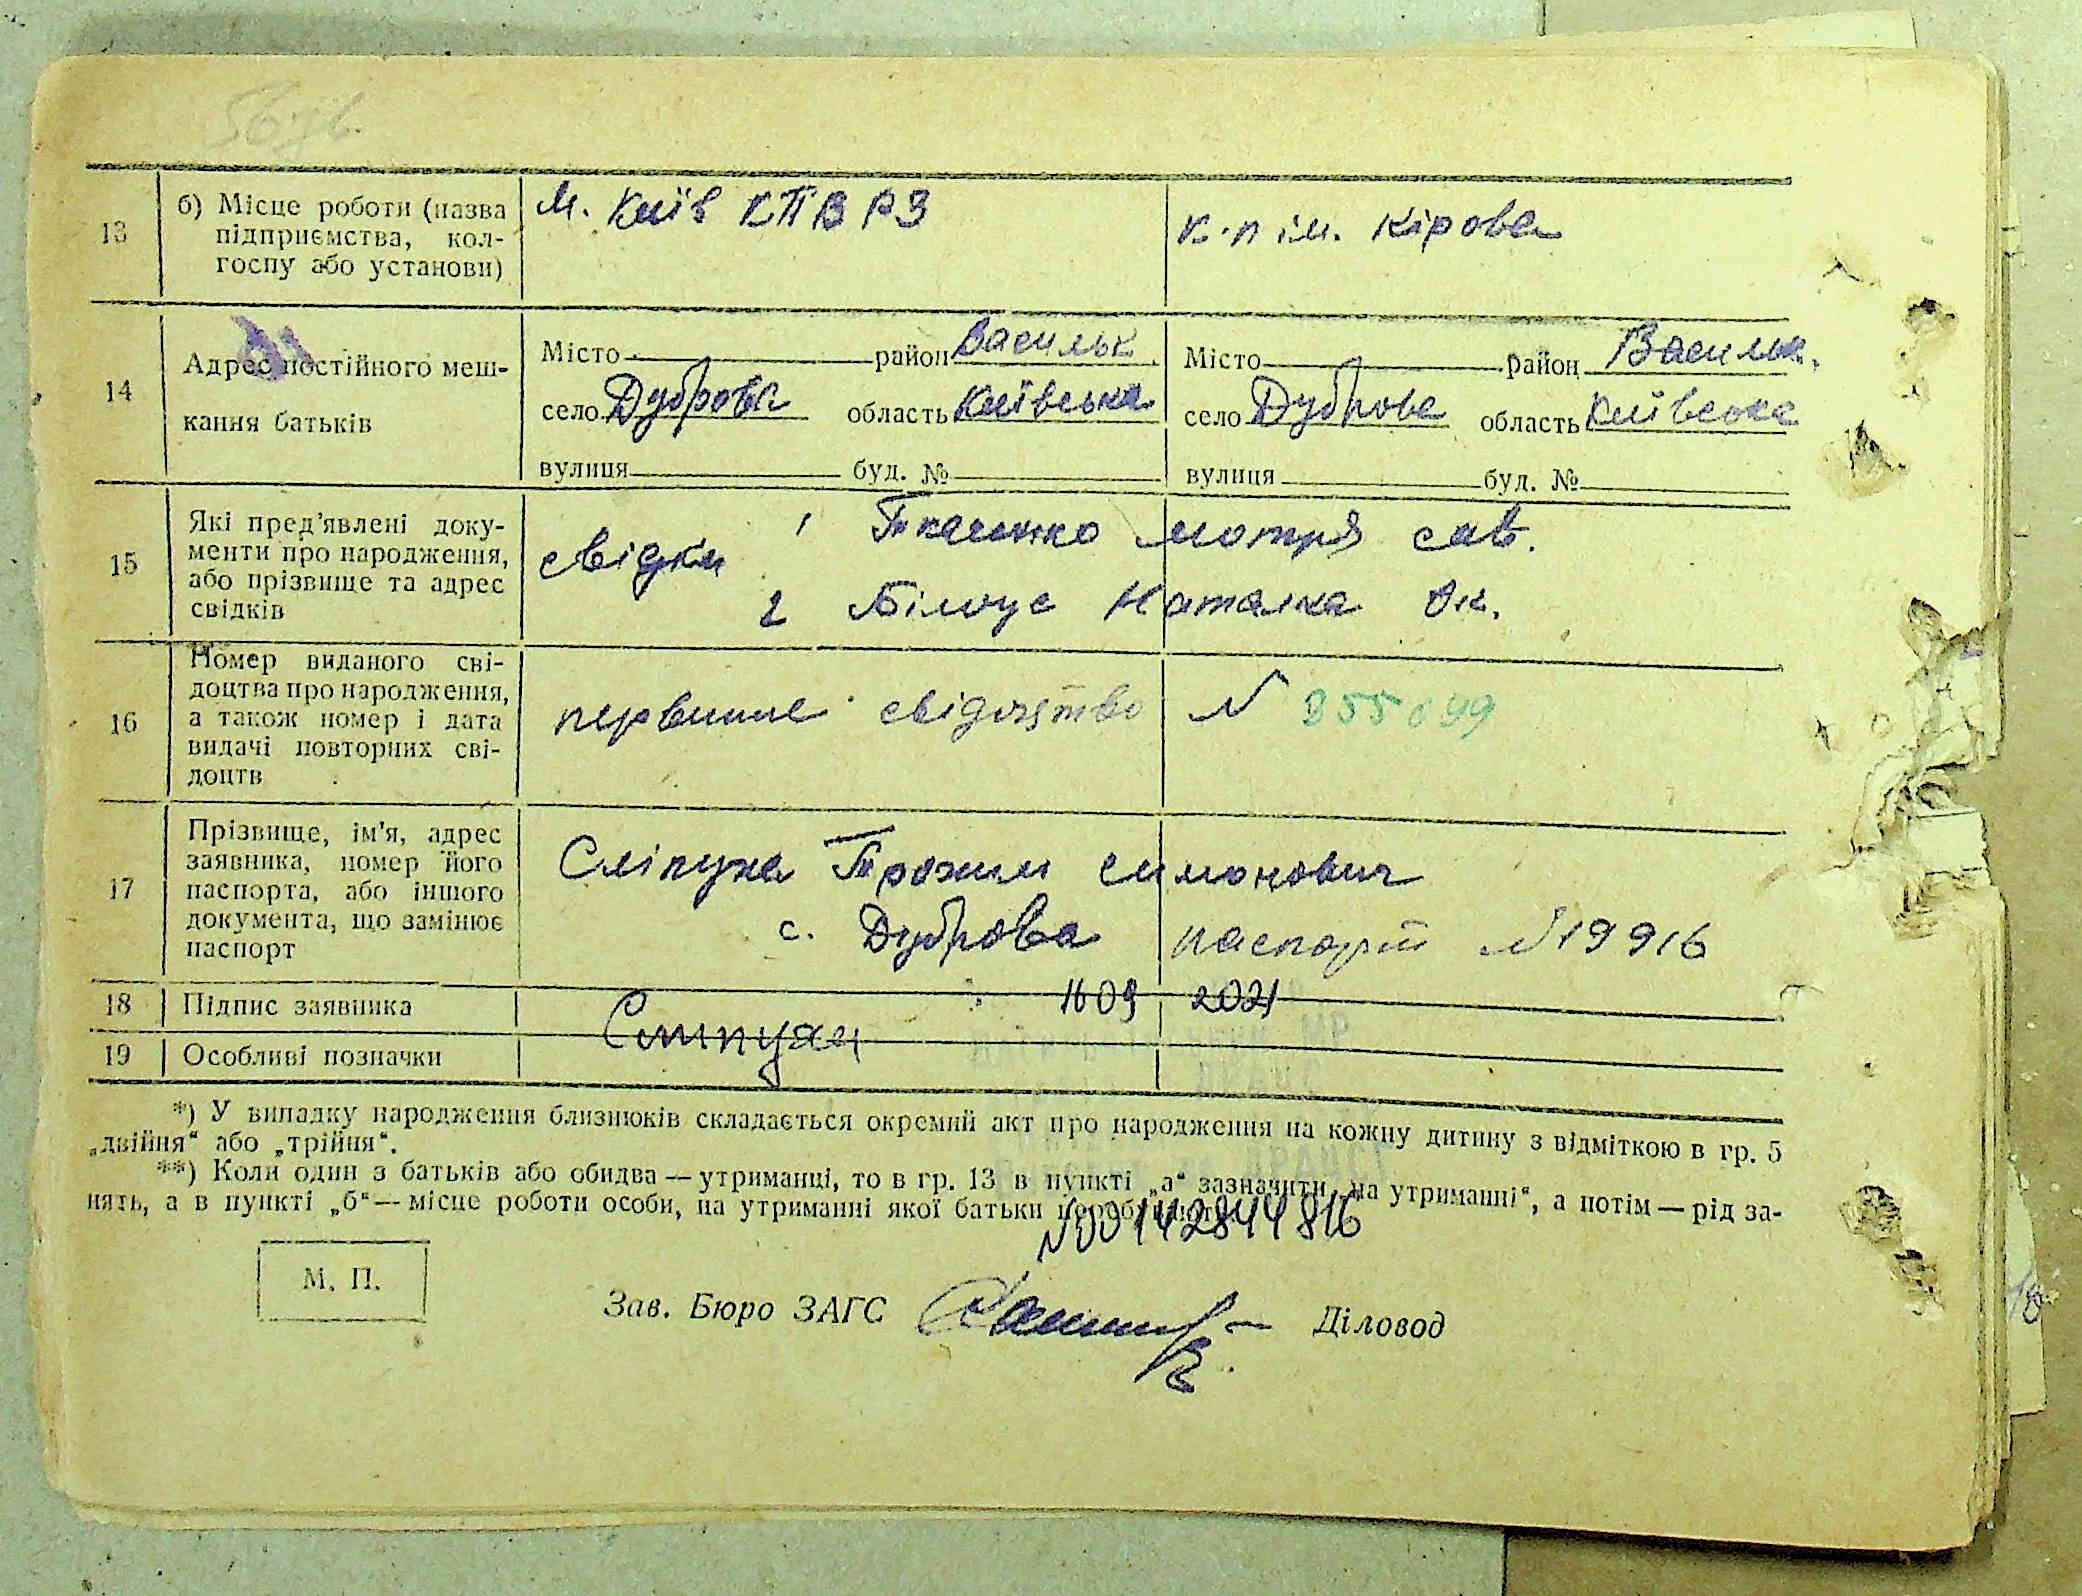 13 б) Місце роботи (назва підприємства, колгоспу або установи)
м. Київ КПВРЗ
к-п ім. Кірова
14 Адрес постійного мешкання батьків
Місто район Васильк.
село Дуброва область Київська
вулиця буд. №
Місто район Васильк.
село Дуброва область Київська
вулиця буд. №
15 Які пред'явлені документи про народження, або прізвище та адрес свідків
свідки 1 Ткаченко Мотря сав.
2 Білоус Наталка Ок.
16 Номер виданого свідоцтва про народження, а також номер і дата видачі повторних свідоцтв
первинне свідоцтво N 355099
17 Прізвище, ім'я, адрес заявника, номер його паспорта, або іншого документа, що замінює паспорт
Сліпуха Трохим симонович
с. Дуброва паспорт N 19916
18 Підпис заявника
1609 2021
Слипуха
19 Особливі позначки
*) У випадку народження близнюків складається окремий акт про народження на кожну дитину з відміткою в гр. 5
„двійня“ або „трійня“.
**) Коли один з батьків або обидва — утриманці, то в гр. 13 в пункті „а“ зазначити „на утриманні“, а потім — рід за-
нять, а в пункті „б“ — місце роботи особи, на утриманні якої батьки перебувають.
N00142844816
М. П.
Зав. Бюро ЗАГС
Діловод